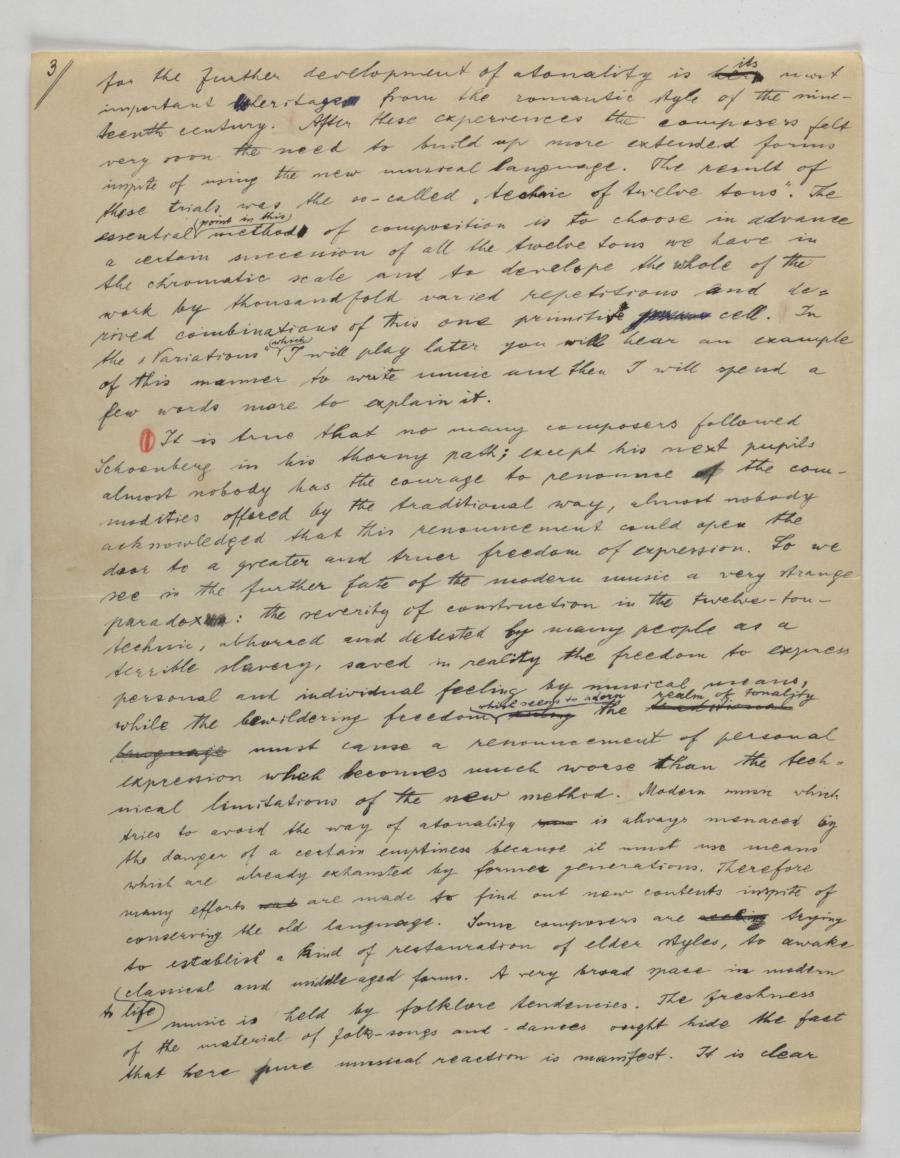 3
for the further development of atonality is its most
important heritage from the romantic style of the nine-
teenth century. After these experiences the composers felt
very soon the need to build up more extended forms
inspite of using the new musical language. The result of
these trials was the so-called „technic of twelve tons". The
essential point in this method of composition is to choose in advance
a certain succession of all the twelve tons we have in
the chromatic scale and to develope the whole of the
work by thousandfold varied repetitions and de=
rived combinations of this one primitive cell. In
the „Variations" which I will play later you will hear an example
of this manner to write music and then I will spend a
few words more to explain it.
It is true that no many composers followed
Schoenberg in his thorny path; except his next pupils
almost nobody has the courage to renounce the com-
modities offered by the traditional way, almost nobody
acknowledged that this renouncement could open the
door to a greater and truer freedom of expression. So we
see in the further fate of the modern music a very strange
paradox: the severity of construction in the twelve-ton-
technic, abhorred and detested by many people as a
terrible slavery, saved in reality the freedom to express
personal and individual feeling by musical means,
while the bewildering freedom which seems to adorn the realm of tonality
language must cause a renouncement of personal
expression which becomes much worse than the tech=
nical limitations of the new method. Modern music which
tries to avoid the way of atonality is always menaced by
the danger of a certain emptiness because it must use means
which are already exhausted by former generations. Therefore
many efforts are made to find out new contents inspite of
conserving the old language. Some composers are trying
to establish a kind of restauration of elder styles, to awake
classical and middleaged forms. A very broad space in modern
to life music is held by folklore tendencies. The freshness
of the material of folk-songs and -dances ought hide the fact
that here pure musical reaction is manifest. It is clear